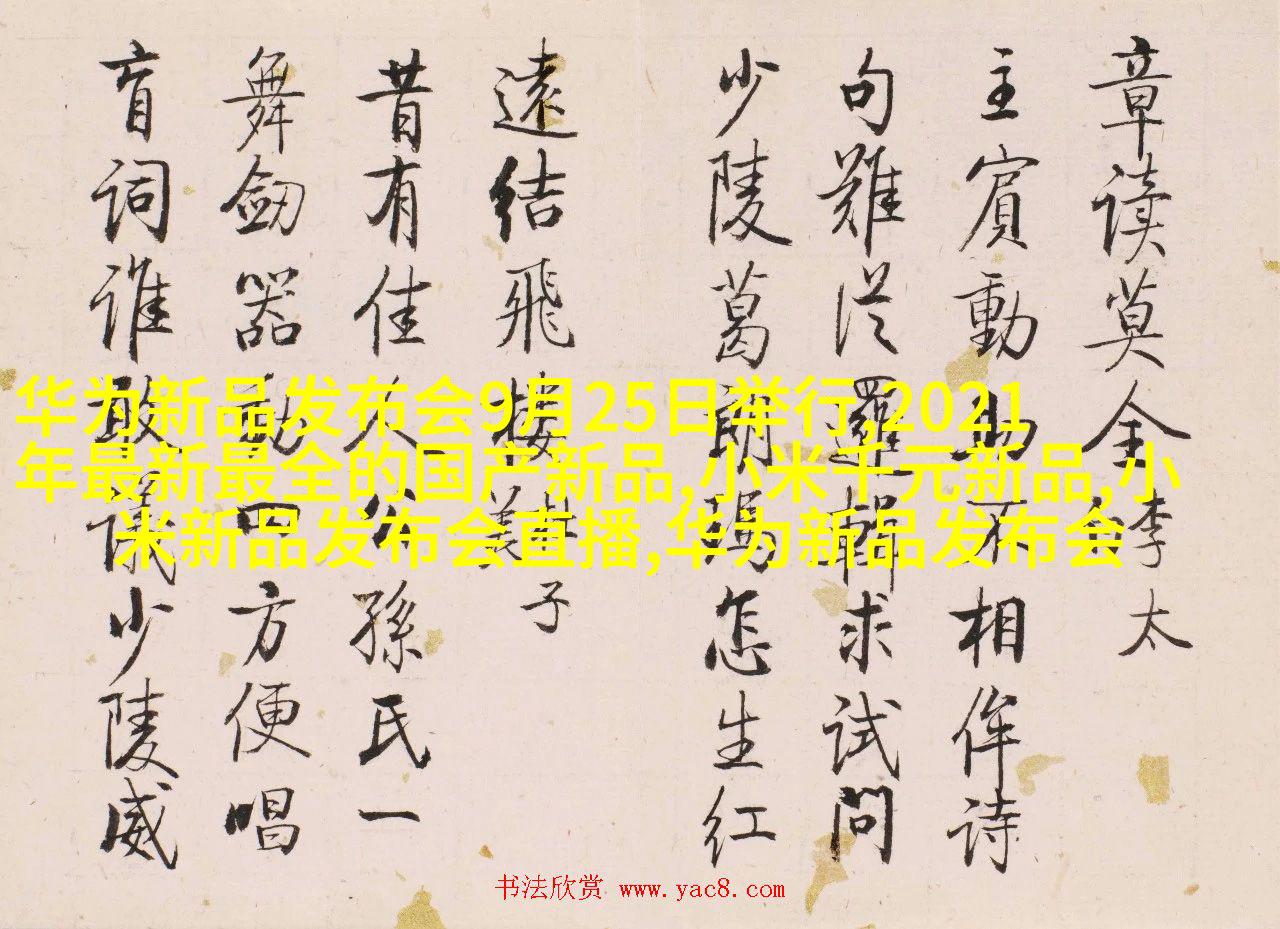 章读莫全李太
主賓動相侔诗
句難從邏輯求试問
少陵葛朗怎生红
遠结飛子
昔有佳人公孫氏一
舞劔器動四方便唱
盲词谁敢議少陵威
华为新品发布会9月25日举行,2021
年最新最全的国产新品,小米千元新品,小
米新品发布会直播,华为新品发布会
书法欣赏 www.yac8.com